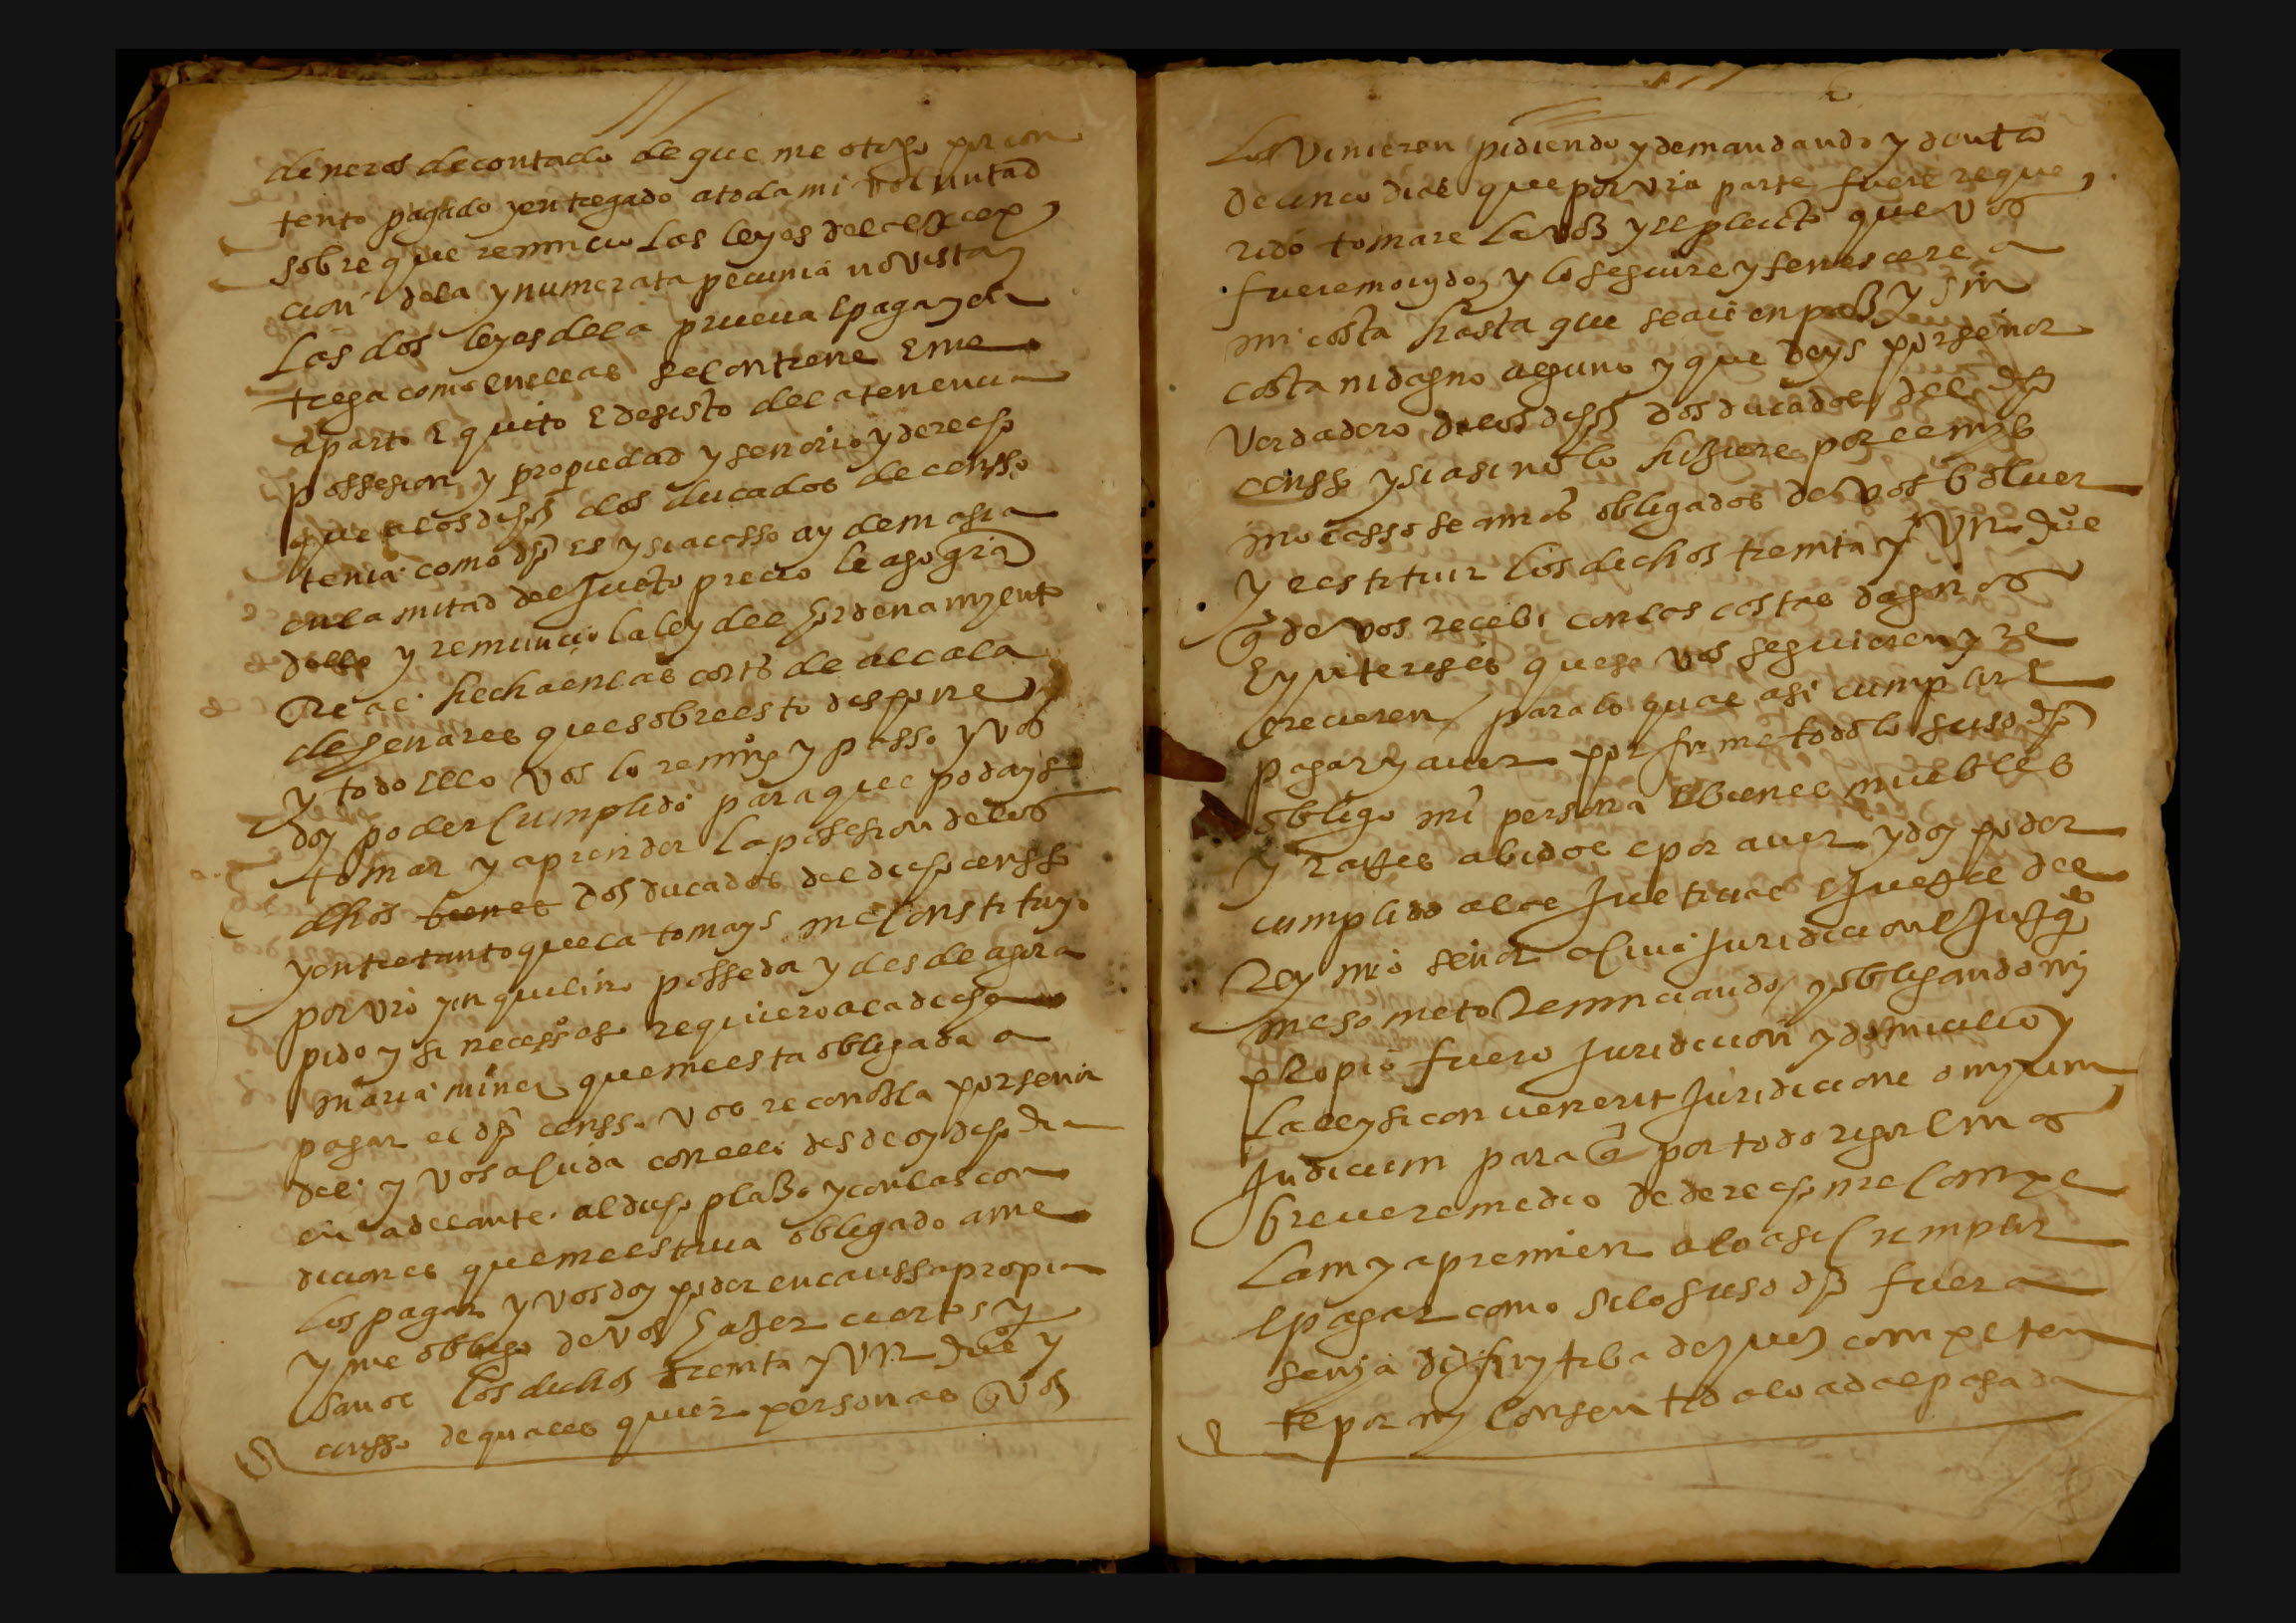 dineros de contado de que me otrgo por con
tento pagado y entregado a toda mi voluntad
sobre que renuncio las leyes de la excep
cion dela ynumerata pecunia no vista y
las dos leyes dela prueua e paga y en
trega como en ellas se contiene E me
aparto E quito E desisto de la tenencia
possesion y propiedad y señorio y derecho
que a los dhos dos ducados de censso
tenia como dho es y si acasso ay demasia
en la mitad del justo precio le ago gria
dello y renuncio la ley del hordenamyento
Real hecha en las cortes de alcala
de henares que sobre esto dispone
y todo ello vos lo renuo y passo y vos
doy poder cumplido para que podays
tomar y aprender la posesion de los
dhos bienes dos ducados del dicho censso
y entretanto que la tomays me constituyo
por vro ynquelino possedor y desde agora
pido y si necessº es requiero a la dicha
maria muñez que me esta obligada a
pagar el dho censso vos reconozca por señor
del y vos acuda con elli desde oy dicho dia
en adelante al dicho plazo y con las con
diciones que me estaua obligado a me
los pagar y vos doy poder en caussa propia
y me obligo de vos hazer ciertos y
sanos los dichos treinta y un duº y
censso de quales quier personas q vos
los vinieren pidiendo y demandando y dentro
de cinco dias que por vra parte fuere reque
rido tomare la voz y el pleito que vos
fuere mouydo y lo seguire y fenescere a
mi costa hasta que seais en paz y sin
costa ni dagno alguno y que deys por señor
verdadero de los dichos dos ducados del dho
censso y si asi no lo hiziere por el mis
mo casso seamos obligados de vos boluer
y restituir los dichos treinta y un duº
q de vos recebi con las costas dagnos
E yntereses que se vos seguieren y re
crecieren para lo qual asi cumplir E
pagar y auer por firme todo lo suso dho
obligo mi persona E bienes muebles
y raizes abidos e por auer y doy poder
cumplido a las justicias e juezes del
Rey mio señor a cuia juridicion e juzgº
me someto Renunciando y obligando my
propio fuero juridicion y domicilio y
la ley si conuenerit juridicione omnyum
judicum para q por todo rigor e mas
breue remedio de derecho me compe
lan y apremien a lo asi cumplir
e pagar como si lo suso dho fuera
senya difinytiba de juez competen
te por my consentida e loada e pasada